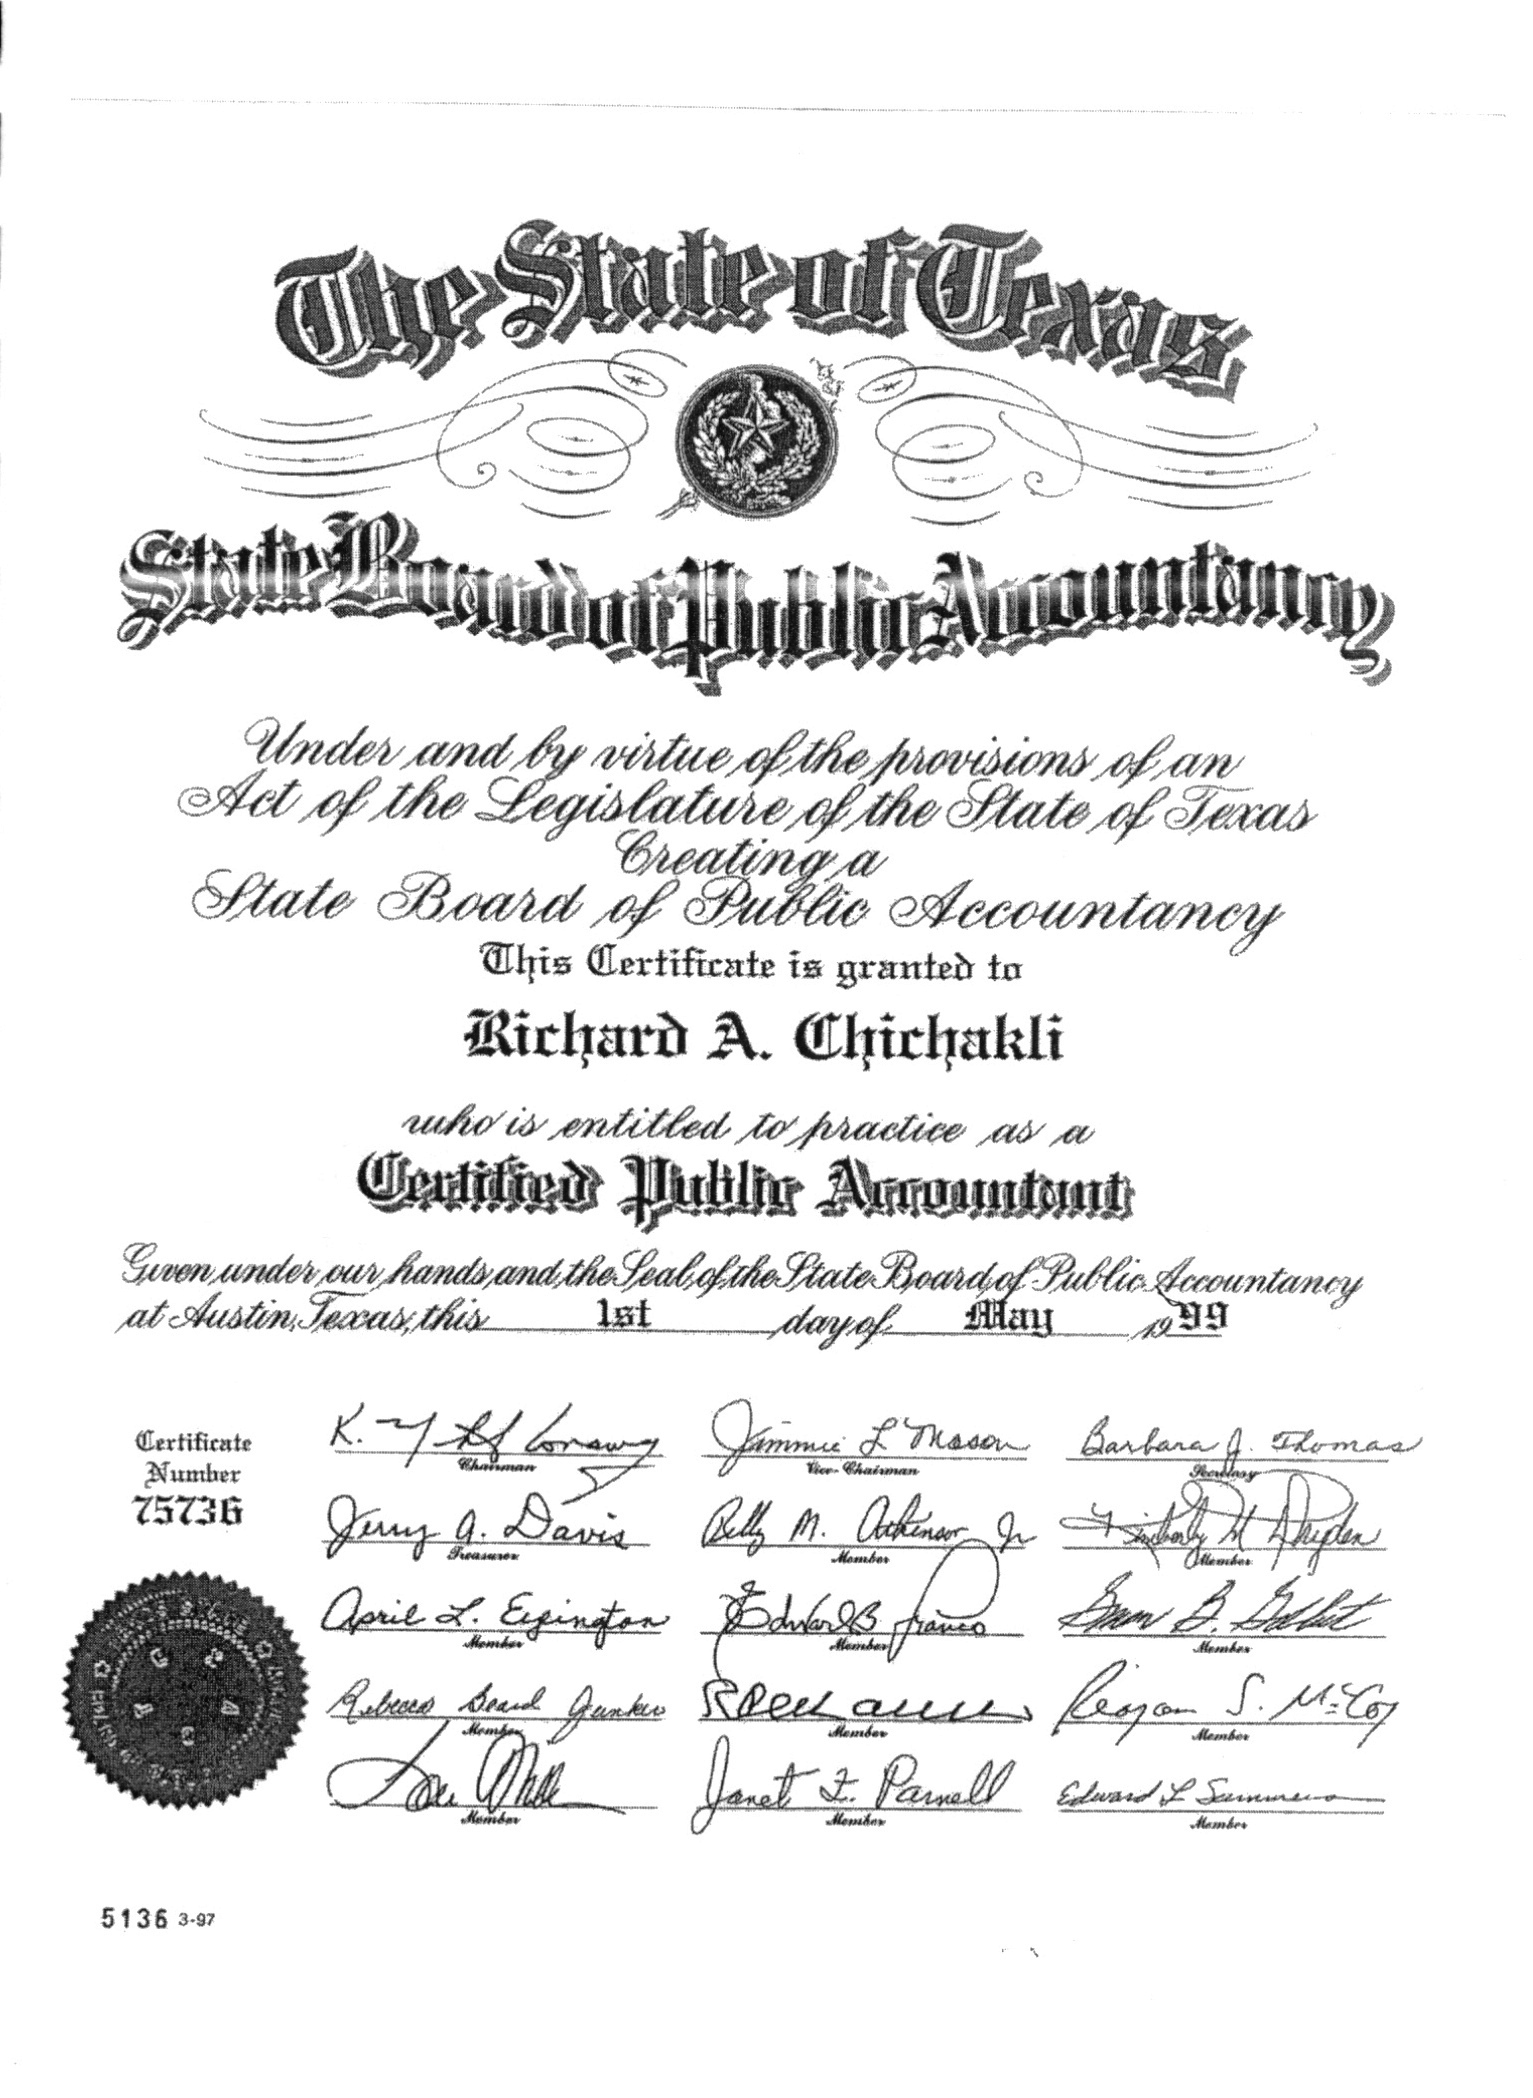 The State of Texas
State Board of Public Accountancy
Under and by virtue of the provisions of an
Act of the Legislature of the State of Texas
Creating a
State Board of Public Accountancy
This Certificate is granted to
Richard A. Chichakli
who is entitled to practice as a
Certified Public Accountant
Given under our hands and the Seal of the State Board of Public Accountancy
at Austin, Texas, this 1st day of May 1999
Certificate
Number
75736
K. Conaway
Chairman
Jimmie L. Mason
Vice-Chairman
Barbara J. Thomas
Secretary
Jerry A. Davis
Treasurer
Billy M. Atkinson Jr
Member
Kimberly M
Member
April L. Eyington
Member
Edward B. Franco
Member
B.
Member
Rebecca Beard Junker
Member
Member
Reagan S. McCoy
Member
Member
Janet F. Parnell
Member
Edward L Summers
Member
5136 3-97